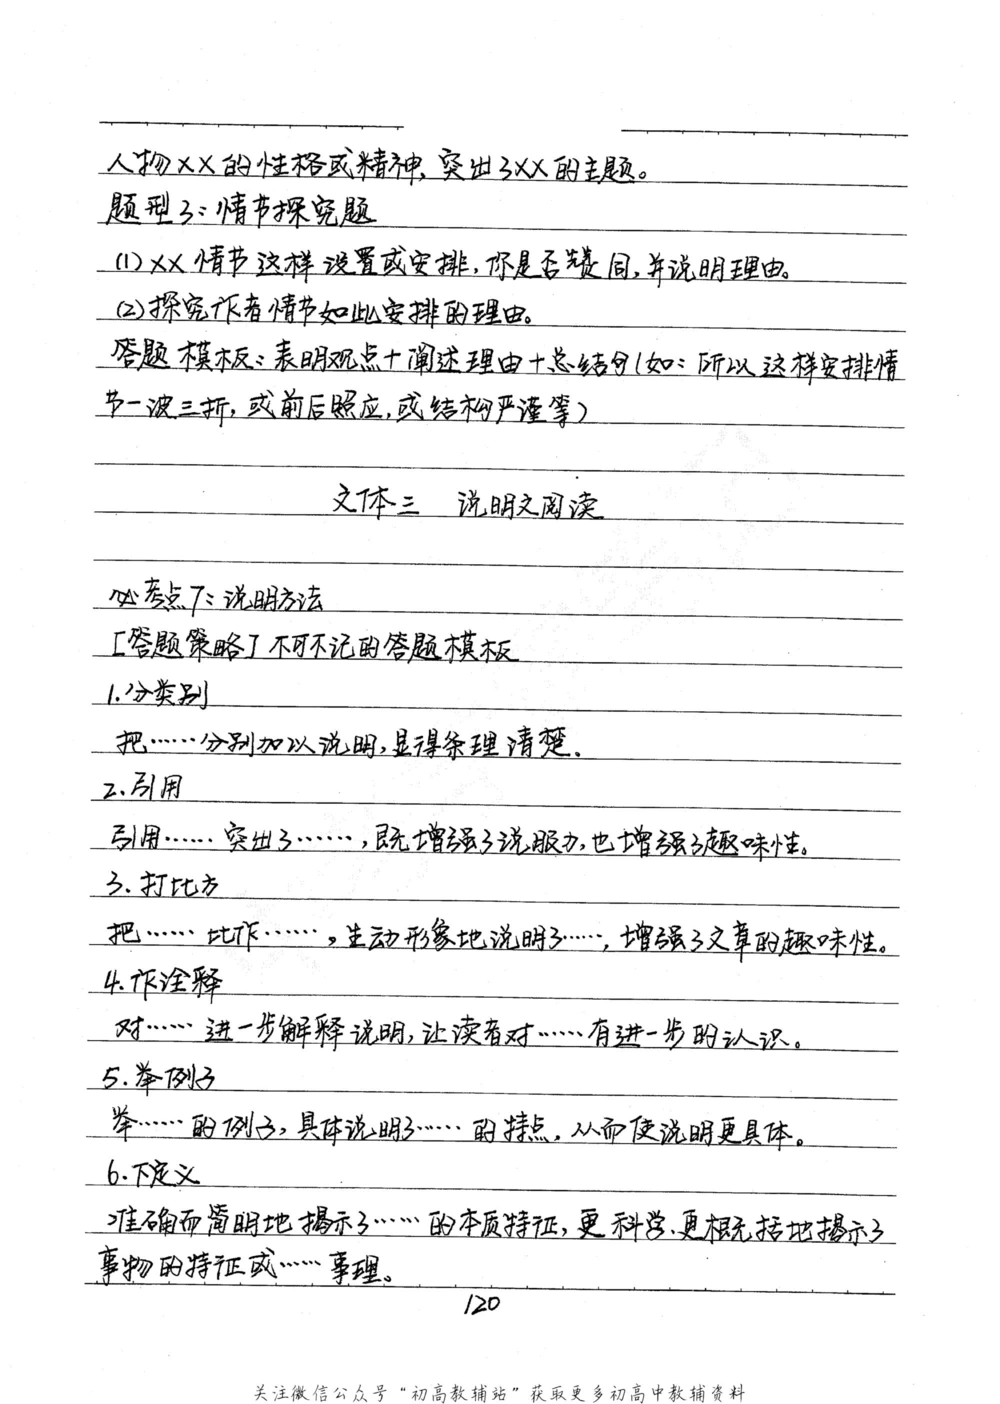 人物XX的性格或精神,突出了XX的主题。
题型3:情节探究题
(1)XX情节这样设置或安排,你是否赞同,并说明理由。
(2)探究作者情节如此安排的理由。
答题模板:表明观点+阐述理由+总结分(如:所以这样安排情
节一波三折,或前后照应,或结构严谨等)
文体三 说明文阅读
必考点7:说明方法
[答题策略]不可不记的答题模板
1.分类别
把……分别加以说明,显得条理清楚。
2.引用
引用……突出了……,既增强了说服力,也增强了趣味性。
3.打比方
把……比作……。生动形象地说明了……,增强了文章的趣味性。
4.作诠释
对……进一步解释说明,让读者对……有进一步的认识。
5.举例子
举……的例子,具体说明了……的特点,从而使说明更具体。
6.下定义
准确而简明地揭示了……的本质特征,更科学、更概括地揭示了
事物的特征或……事理。
120
关注微信公众号“初高教辅站”获取更多初高中教辅资料